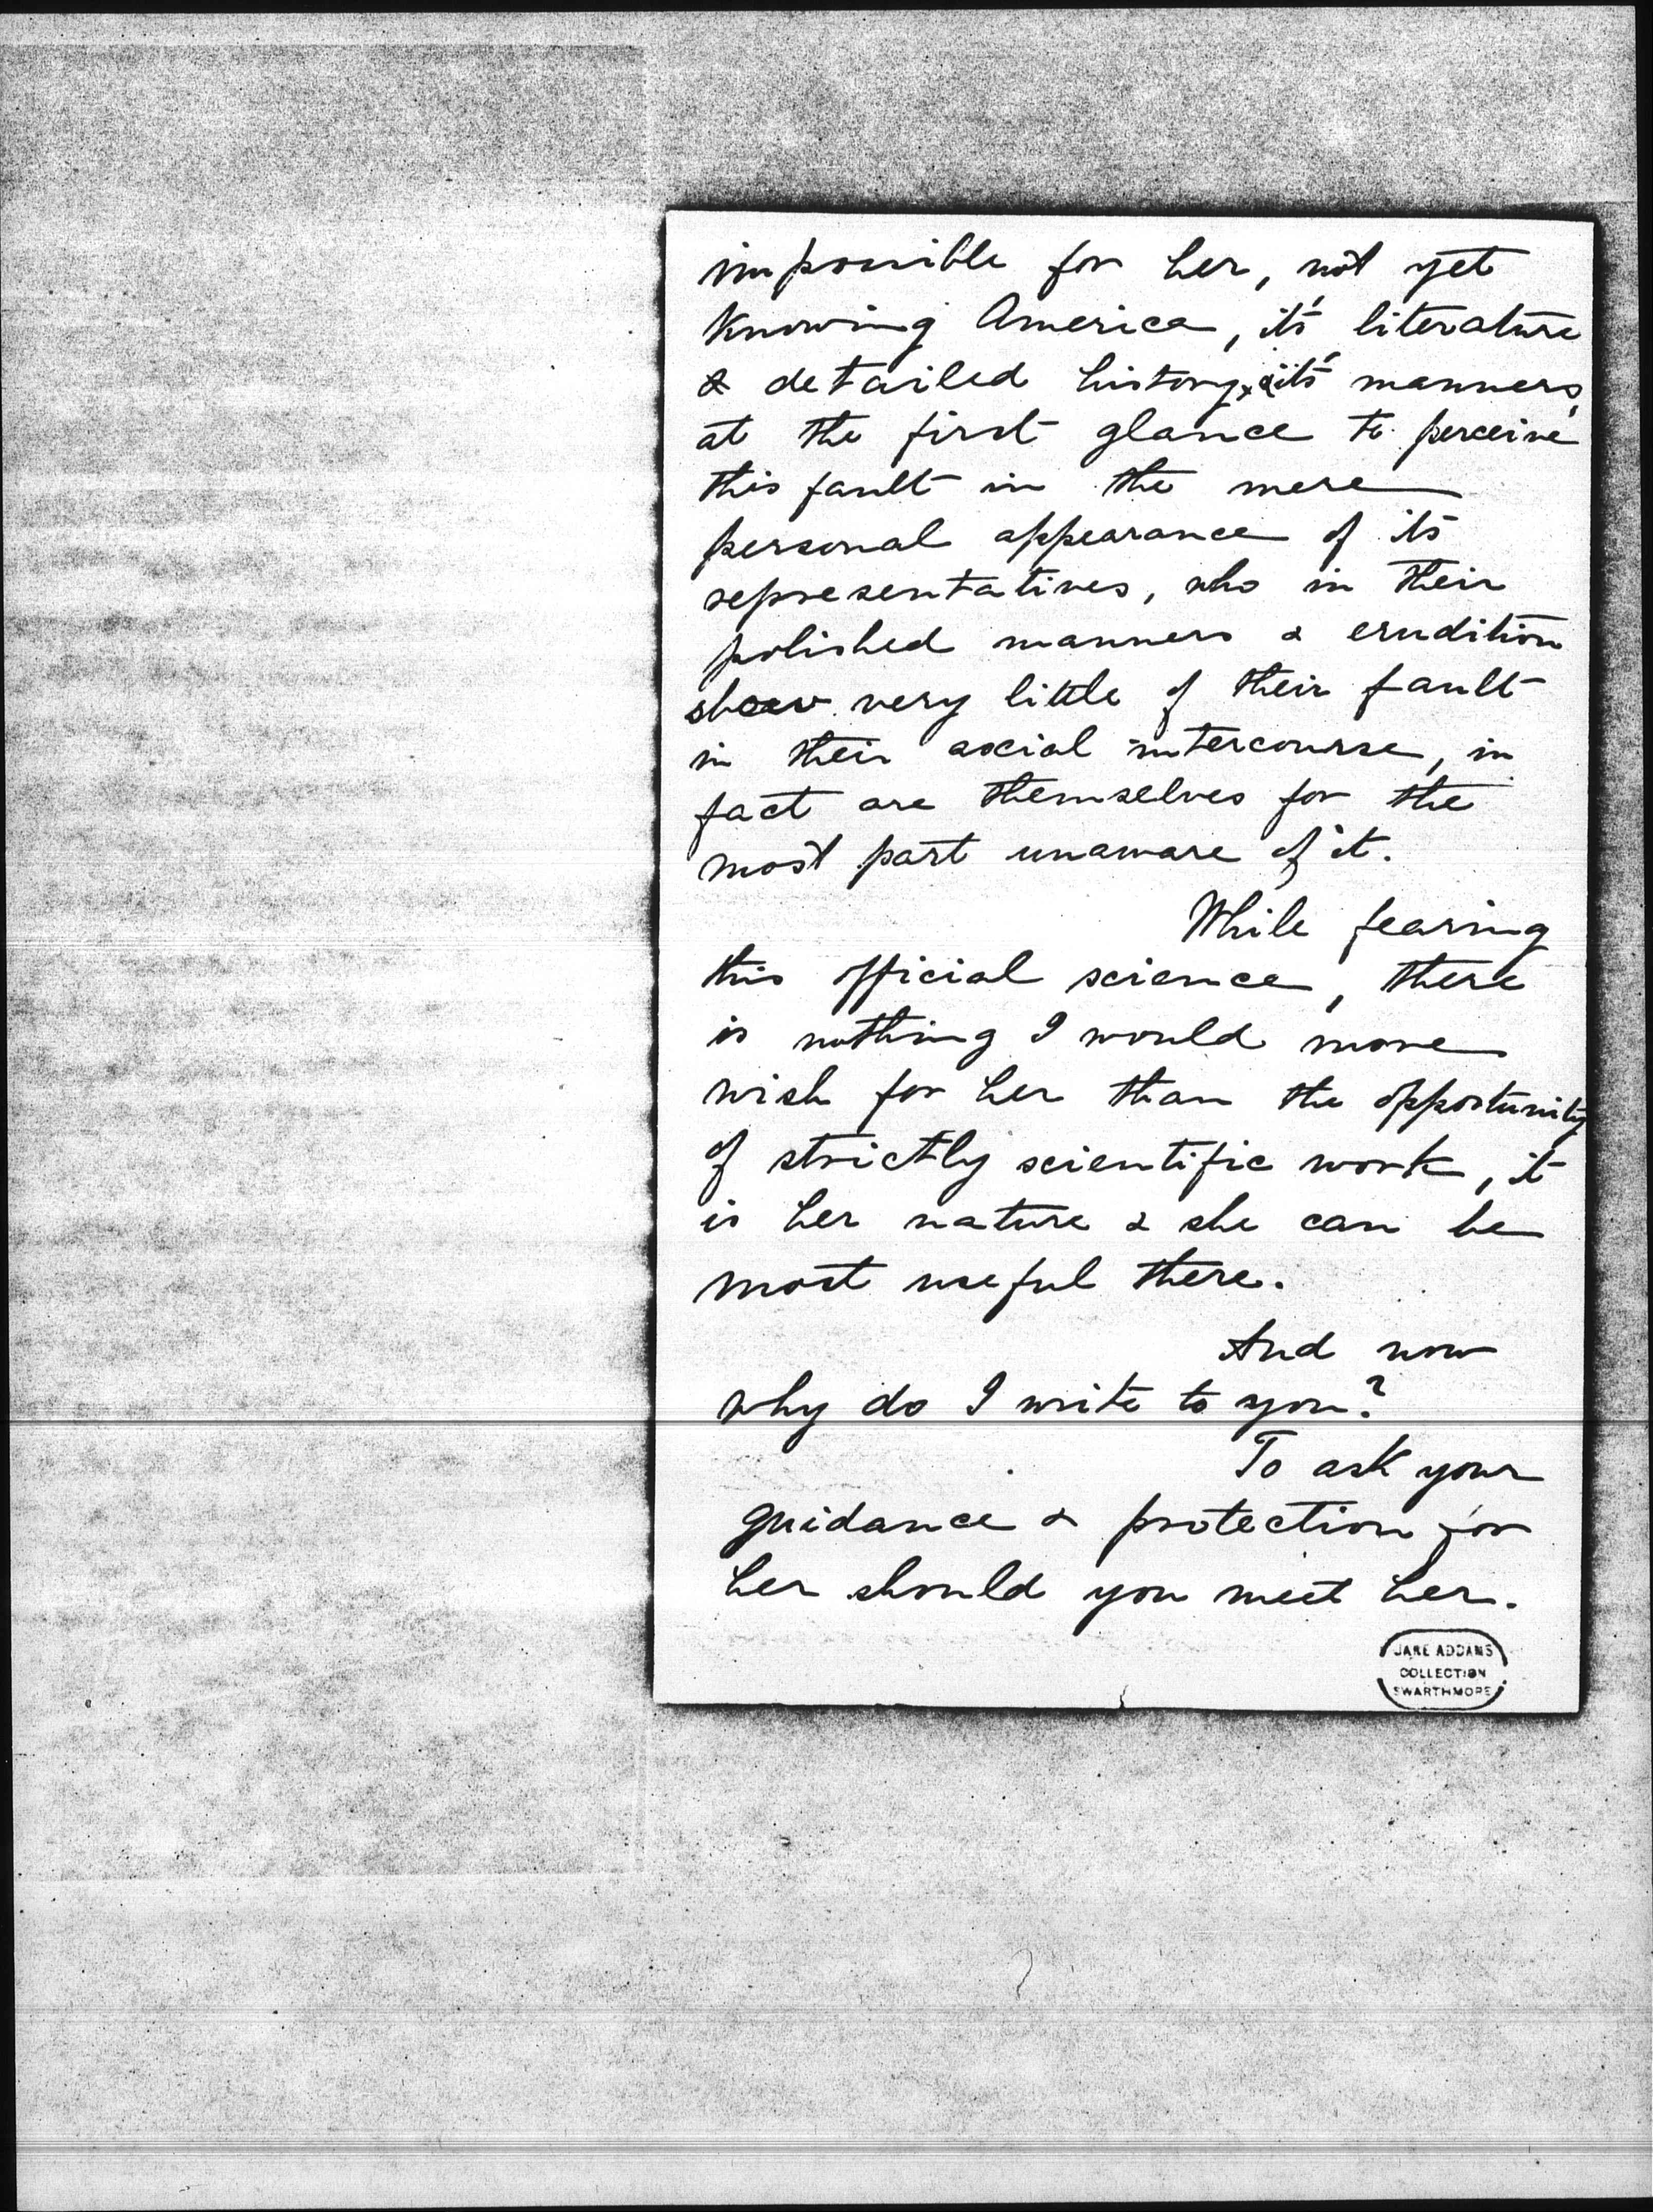 impossible for her, not yet
knowing America, its literature
& detailed history, & its manners,
at the first glance to perceive
this fault in the mere
personal appearance of its
representatives, who in their
polished manners & erudition
show very little of their fault
in their social intercourse, in
fact are themselves for the
most part unaware of it.
While fearing
this official science, there
is nothing I would more
wish for her than the opportunity
of strictly scientific work, it
is her nature & she can be
most useful there.
And now
why do I write to you?
To ask your
guidance & protection for
her should you meet her.
JANE ADDAMS
COLLECTION
SWARTHMORE